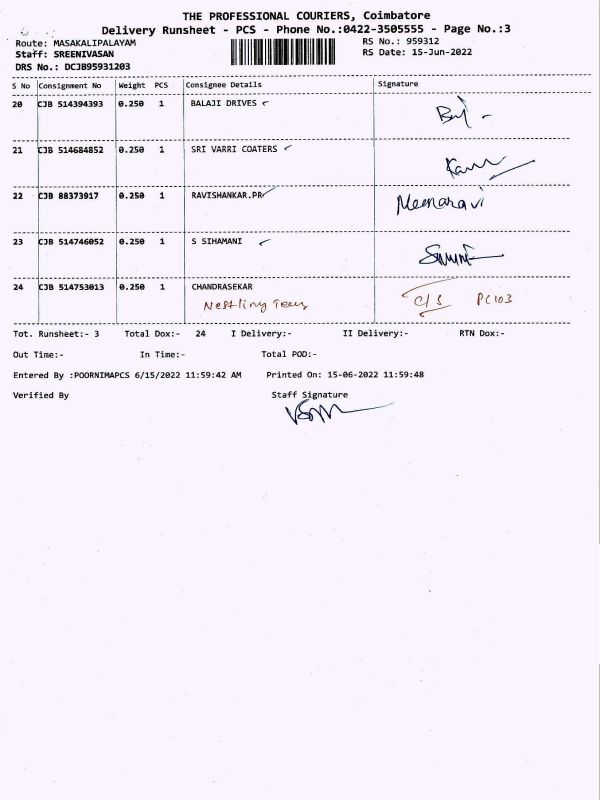 THE PROFESSIONAL COURIERS, Coimbatore
Delivery Runsheet - PCS - Phone No.:0422-3505555 - Page No.:3
Route: MASAKALIPALAYAM
RS No.: 959312
Staff: SREENIVASAN
RS Date: 15-Jun-2022
DRS No.: DCJB95931203
S No Consignment No Weight PCS Consignee Details Signature
20 CJB 514394393 0.250 1 BALAJI DRIVES
21 CJB 514684852 0.250 1 SRI VARRI COATERS
22 CJB 88373917 0.250 1 RAVISHANKAR.PR Meenaravi
23 CJB 514746052 0.250 1 S SIHAMANI
24 CJB 514753013 0.250 1 CHANDRASEKAR
C/S PC103
Tot. Runsheet:- 3 Total Dox:- 24 I Delivery:- II Delivery:- RTN Dox:-
Out Time:- In Time:- Total POD:-
Entered By :POORNIMAPCS 6/15/2022 11:59:42 AM Printed On: 15-06-2022 11:59:48
Verified By Staff Signature